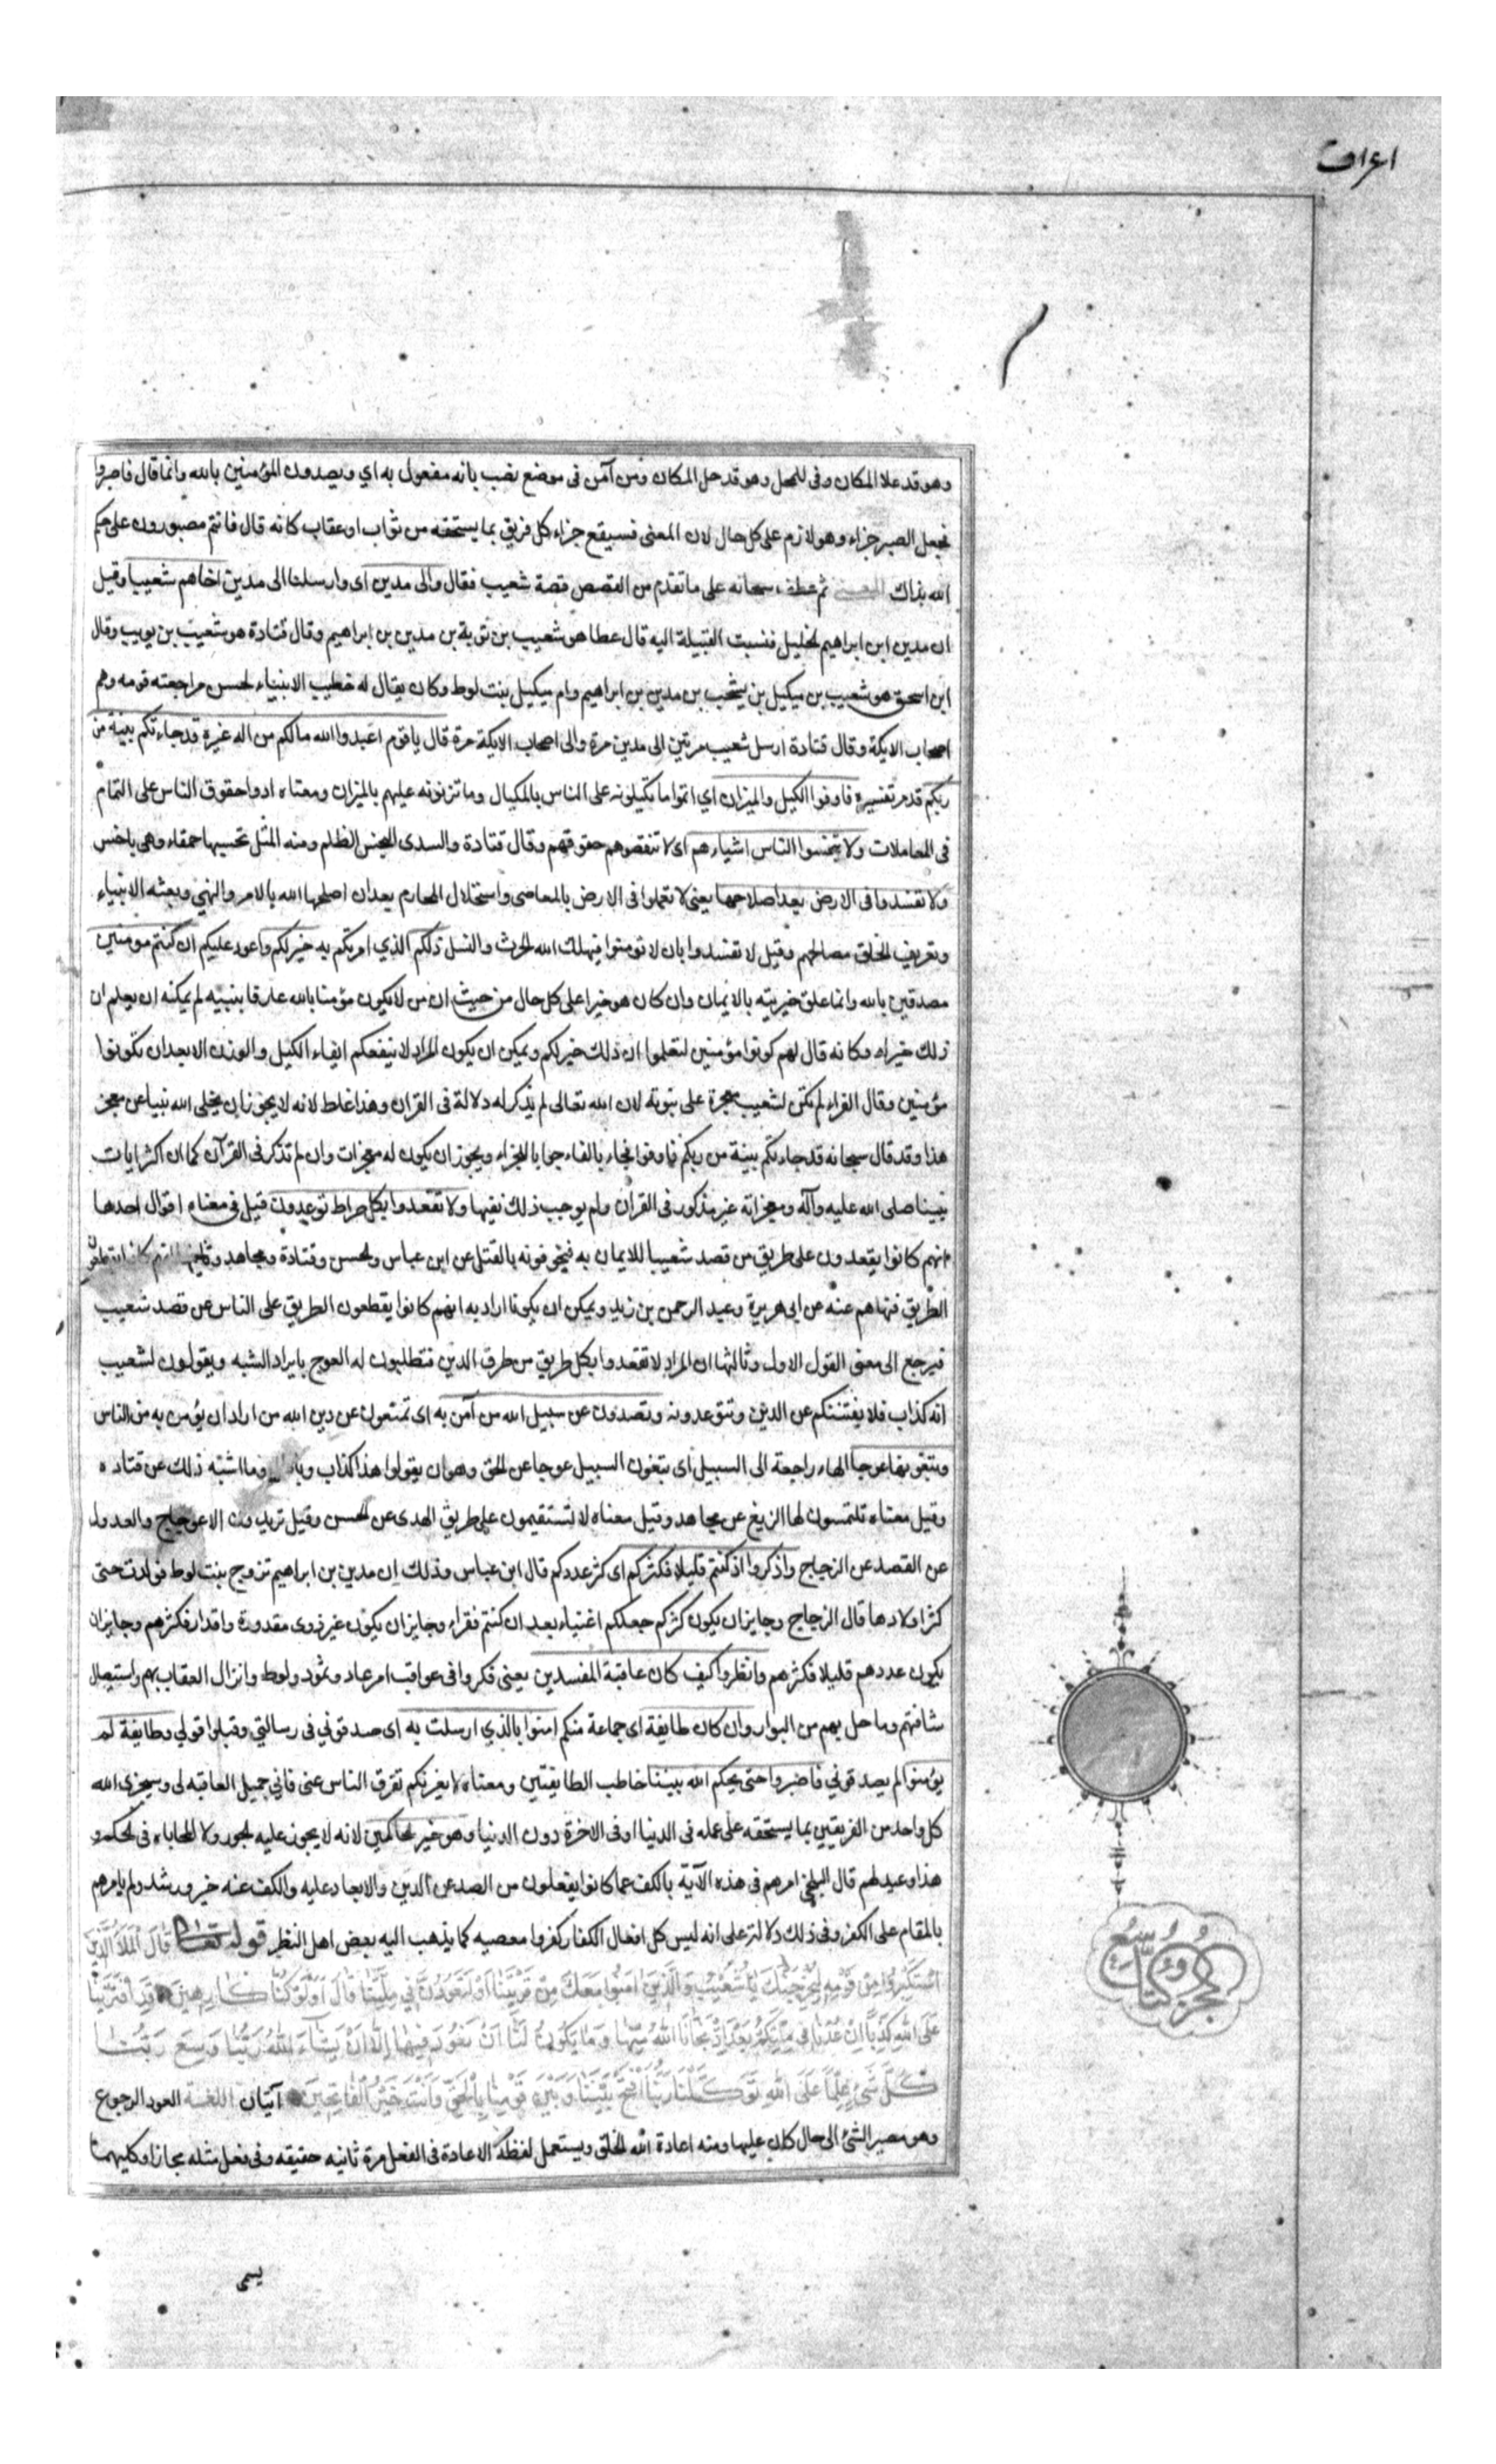 اعراف
وهو قد علا المكان وفي المحل وهو قد حل المكان ومن آمن في موضع نصب بانه مفعول به اي ويصدون المؤمنين بالله وانما قال فاصبروا
فجعل الصبر جزاء وهو لازم على كل حال لان المعنى فسيقع جزاء كل فريق بما يستحقه من ثواب او عقاب كانه قال فانتم مصبورون على حكم
الله بذاك المعنى ثم عطف سبحانه على ما تقدم من القصص قصة شعيب فقال والى مدين اى وارسلنا الى مدين اخاهم شعيبا وقيل
ان مدين ابن ابراهيم الخليل فنسبت القبيلة اليه قال عطا هو شعيب بن توبة بن مدين بن ابراهيم وقال قتادة هو شعيب بن يويب وقال
ابن اسحق هو شعيب بن ميكيل بن يشجب بن مدين بن ابراهيم وام ميكيل بنت لوط وكان يقال له خطيب الانبياء لحسن مراجعته قومه وهم
اصحاب الايكة وقال قتادة ارسل شعيب مرتين الى مدين مرة والى اصحاب الايكة مرة قال يا قوم اعبدوا الله مالكم من اله غيره قد جاءتكم بينة من
ربكم قد مر تفسيره فاوفوا الكيل والميزان اي اتموا ما تكيلونه على الناس بالمكيال وما تزنونه عليهم بالميزان ومعناه ادوا حقوق الناس على التمام
فى المعاملات ولا تبخسوا الناس اشياءهم اى لا تنقصوهم حقوقهم وقال قتادة والسدى البخس الظلم ومنه المثل تحسبها حمقاء وهى باخس
ولا تفسدوا فى الارض بعد اصلاحها يعنى لا تعملوا فى الارض بالمعاصى واستحلال المحارم بعد ان اصلحها الله بالامر والنهي وبعثه الانبياء
وتعريف الخلق مصالحهم وقيل لا تفسدوا بان لا تومنوا فيهلك الله الحرث والنسل ذلكم الذي امرتكم به خير لكم واعود عليكم ان كنتم مومنين
مصدقين بالله وانما علق خيريته بالايمان وان كان هو خيرا على كل حال من حيث ان من لا يكون مؤمنا بالله عارفا بنبيه لم يمكنه ان يعلم ان
ذلك خير له وكانه قال لهم كونوا مؤمنين لتعلموا ان ذلك خير لكم ويمكن ان يكون المراد لا ينفعكم ايفاء الكيل والوزن الا بعد ان تكونوا
مؤمنين وقال الفراء لم تكن لشعيب معجزة على نبوته لان الله تعالى لم يذكر له دلالة فى القران وهذا غلط لانه لا يجوز ان يخلى الله نبيا عن معجز
هذا وقد قال سبحانه قد جاءتكم بينة من ربكم فاوفوا فجاء بالفاء جوابا للجزاء ويجوز ان يكون له معجزات وان لم تذكر فى القرآن كما ان اكثر ايات
نبينا صلى الله عليه وآله ومعجزاته غير مذكور فى القرآن ولم يوجب ذلك نفيها ولا تقعدوا بكل صراط توعدون قيل فى معناه اقوال احدها
انهم كانوا يقعدون على طريق من قصد شعيبا للايمان به فيخوفونه بالقتل عن ابن عباس والحسن وقتادة ومجاهد وثانيها انهم كانوا يقطعون
الطريق فنهاهم عنه عن ابى هريرة وعبد الرحمن بن زيد ويمكن ان يكونا ارادا به انهم كانوا يقطعون الطريق على الناس عن قصد شعيب
فيرجع الى معنى القول الاول وثالثها ان المراد لا تقعدوا بكل طريق من طرق الدين فتطلبون له العوج بايراد الشبه ويقولون لشعيب
انه كذاب فلا يفتننكم عن الدين وتتوعدونه وتصدون عن سبيل الله من آمن به اى تمنعون عن دين الله من اراد ان يؤمن به من الناس
وتبغونها عوجا الهاء راجعة الى السبيل اى تبغون السبيل عوجا عن الحق وهو ان يقولوا هذا كذاب وباطل وما اشبه ذلك عن قتاده
وقيل معناه تلتمسون لها الزيغ عن مجاهد وقيل معناه لا تستقيمون على طريق الهدى عن الحسن وقيل تريدون الاعوجاج والعدول
عن القصد عن الزجاج واذكروا اذ كنتم قليلا فكثركم اى كثر عددكم قال ابن عباس وذلك ان مدين بن ابراهيم تزوج بنت لوط فولدت حتى
كثر اولادها قال الزجاج وجايز ان يكون كثركم جعلكم اغنياء بعد ان كنتم فقراء وجايز ان يكون غير ذوى مقدورة واقدار فكثرهم وجايز ان
يكون عددهم قليلا فكثرهم وانظروا كيف كان عاقبة المفسدين يعنى فكروا فى عواقب امر عاد وثمود ولوط وانزال العقاب بهم واستيصال
شافتهم وما حل بهم من البوار وان كان طايفة اى جماعة منكم امنوا بالذي ارسلت به اى صدقوني فى رسالتي وقبلوا قولي وطايفة لم
يؤمنوا لم يصدقوني فاصبروا حتى يحكم الله بيننا خاطب الطايفتين ومعناه لا يغرنكم تفرق الناس عنى فاني جميل العاقبه لى وسيجزى الله
كل واحد من الفريقين بما يستحقه على عمله فى الدنيا او فى الاخرة دون الدنيا وهو خير الحاكمين لانه لا يجوز عليه الجور ولا المحاباه فى الحكم و
هذا وعيد لهم قال البلخي امرهم فى هذه الآية بالكف عما كانوا يفعلون من الصد عن الدين والابعاد عليه والكف عنه خير ورشد ولم يامرهم
بالمقام على الكفر وفى ذلك دلالة على انه ليس كل افعال الكفار كفرا ومعصيه كما يذهب اليه بعض اهل النظر قوله تعالى قَالَ الْمَلَأُ الَّذِينَ
اسْتَكْبَرُوا مِنْ قَوْمِهِ لَنُخْرِجَنَّكَ يَا شُعَيْبُ وَالَّذِينَ امَنُوا مَعَكَ مِنْ قَرْيَتِنَا أَوْ لَتَعُودُنَّ فِي مِلَّتِنَا قَالَ أَوَلَوْ كُنَّا كَارِهِينَ قَدِ افْتَرَيْنَا
عَلَى اللهِ كَذِبًا اِنْ عُدْنَا فِي مِلَّتِكُمْ بَعْدَ اِذْ نَجَّانَا اللهُ مِنْهَا وَمَا يَكُونُ لَنَا اَنْ نَعُودَ فِيهَا اِلَّا اَنْ يَشَاءَ اللهُ رَبُّنَا وَسِعَ رَبُّنَا
كُلَّ شَيْءٍ عِلْمًا عَلَى اللهِ تَوَكَّلْنَا رَبَّنَا افْتَحْ بَيْنَنَا وَبَيْنَ قَوْمِنَا بِالْحَقِّ وَاَنْتَ خَيْرُ الْفَاتِحِينَ آيتان اللغة العود الرجوع
وهو مصير الشئ الى حال كان عليها ومنه اعادة الله الخلق ويستعمل لفظة الاعادة فى الفعل مرة ثانيه حقيقه وفى فعل مثله مجازا وكليهما
يسمى